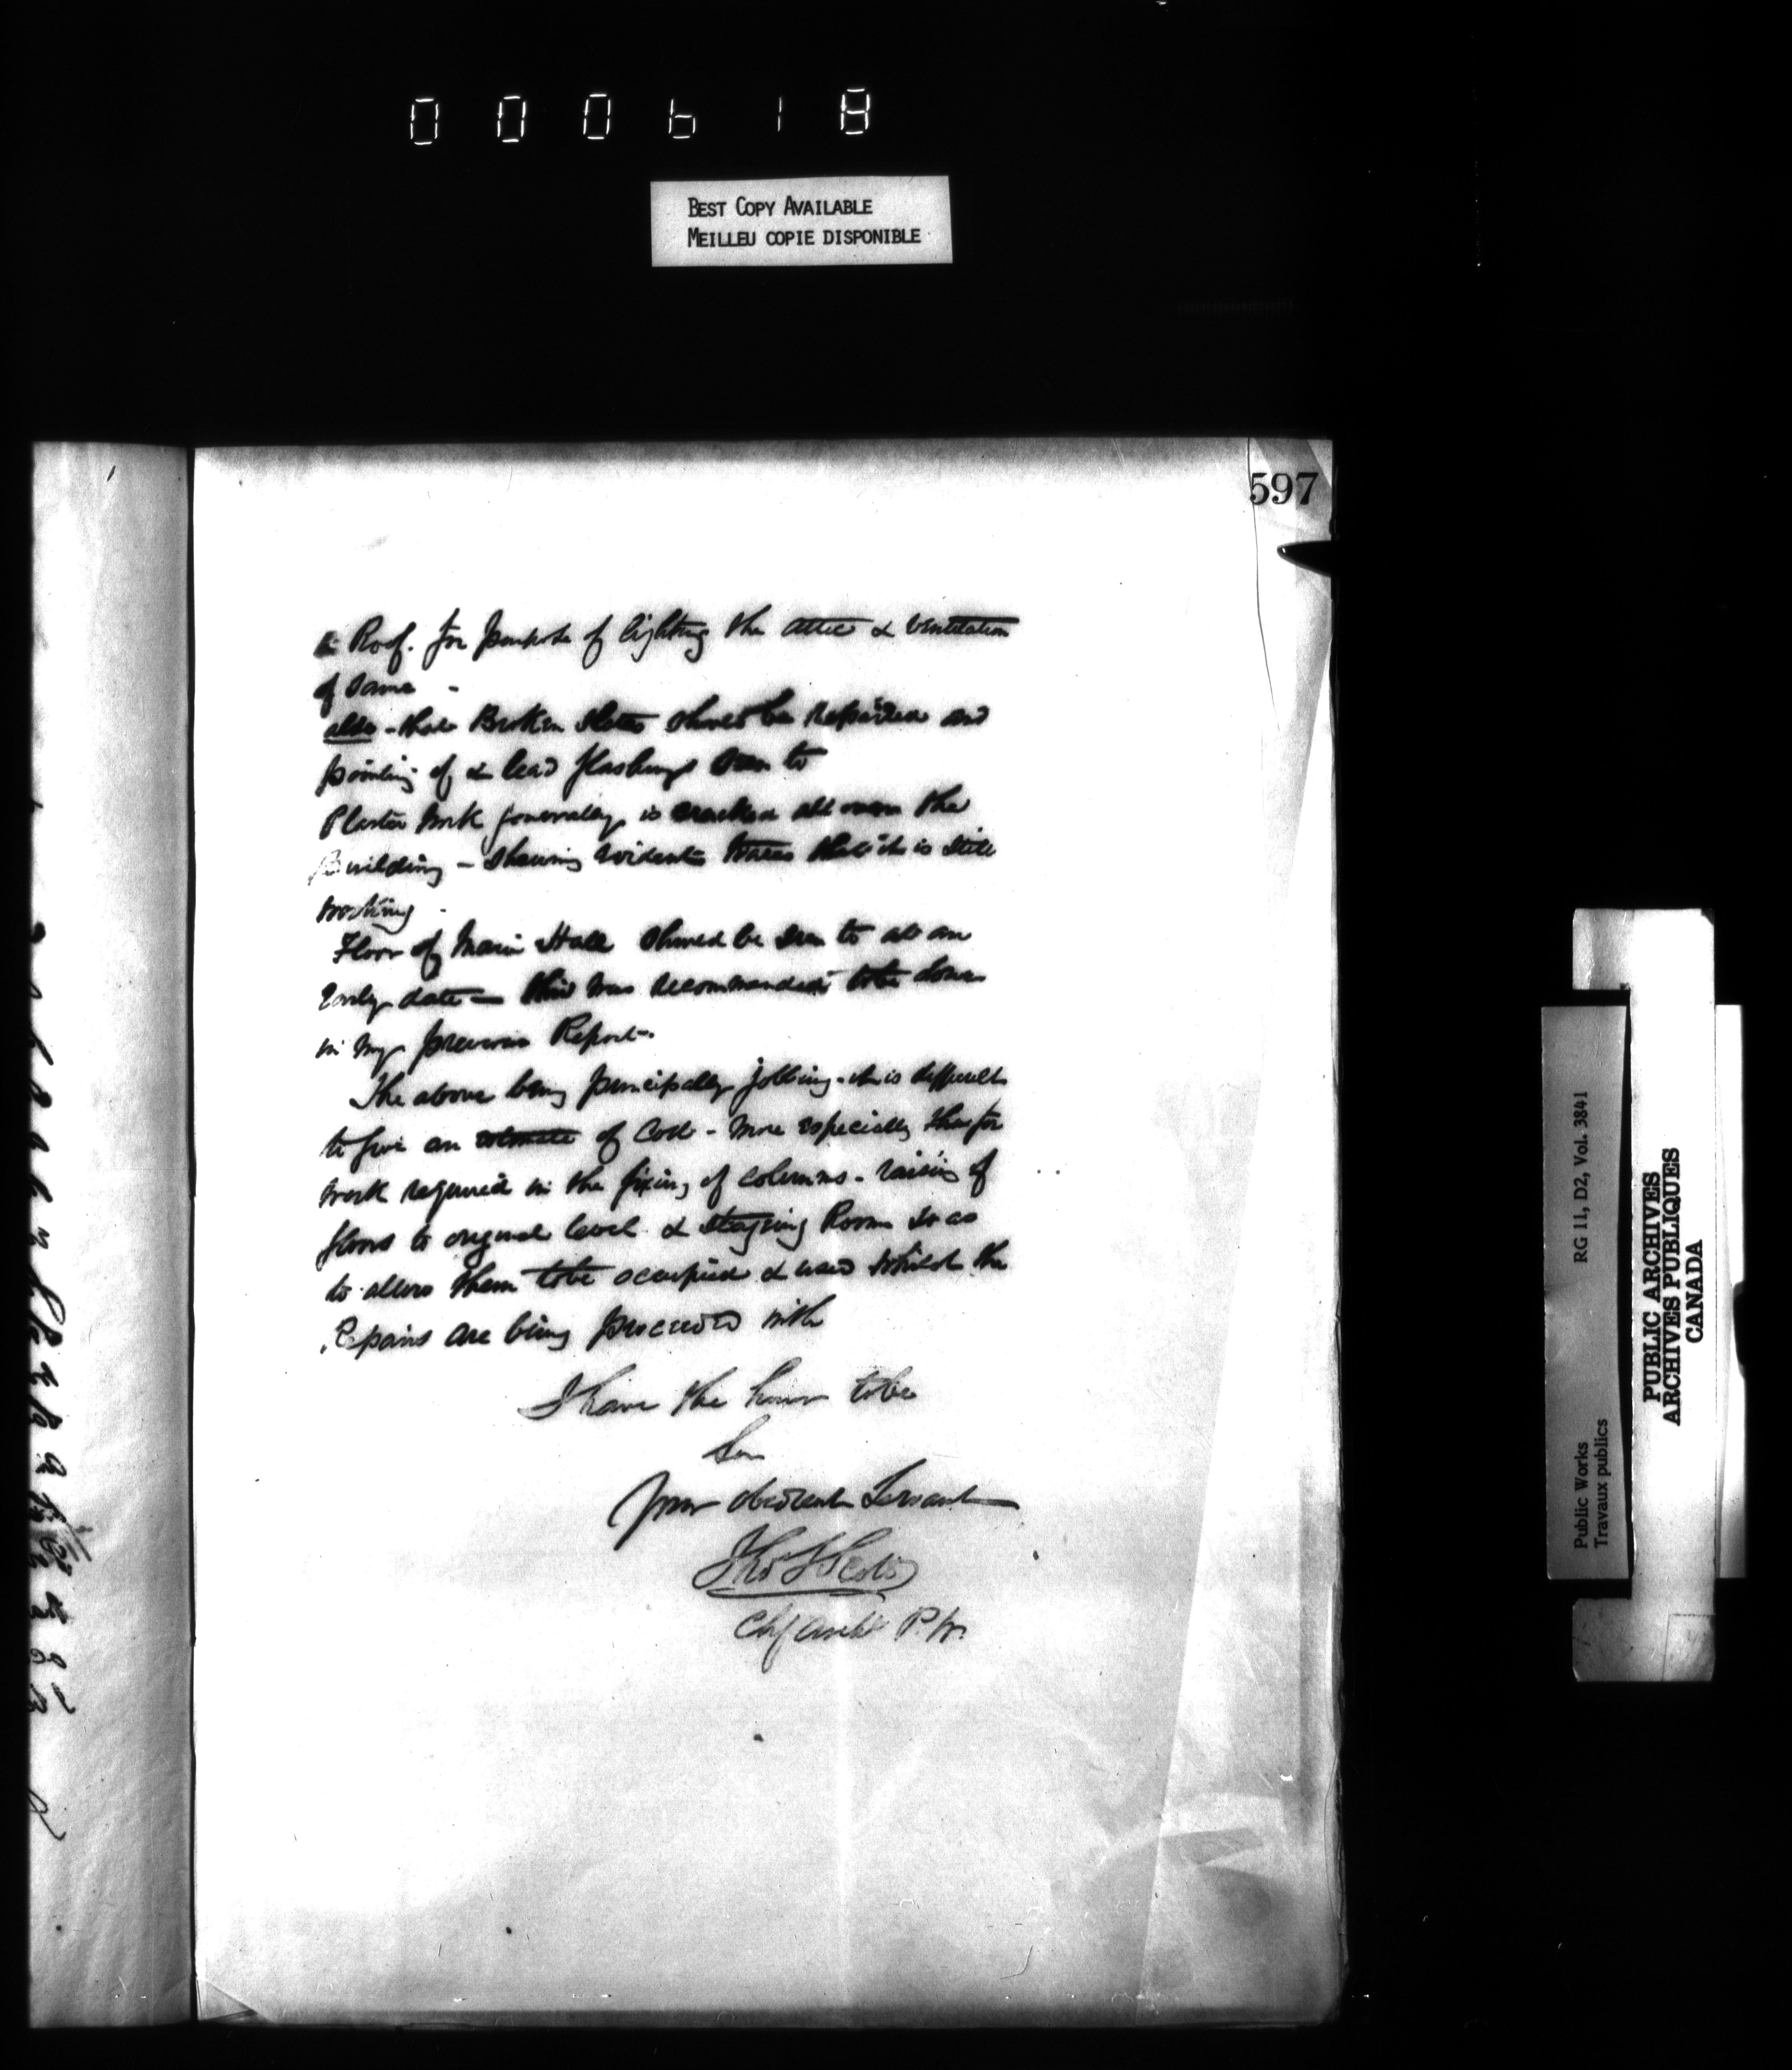 000618
BEST COPY AVAILABLE
MEILLEU COPIE DISPONIBLE
597
in Roof. for purpose of lighting the attic & ventilation
of same -
also - that Broken Slates should be repaired and
pointing of & lead flashings seen to
Plaster work generally is cracked all over the
Building - shewing evident traces that it is still
working.
Floor of Main Hall should be seen to at an
Early date - this was recommended to be done
in my previous Report -
The above being principally jobbing - it is difficult
to give an estimate of Cost - more especially that for
work required in the fixing of columns - raising of
floors to original level & Rooms so as
to allow them to be occupied & used whilst the
Repairs are being proceeded with
I have the honor to be
Sir
Your obedient Servant
Thos S Scott
Chf Archt P.W.
Public Works
Travaux publics
RG 11, D2, Vol. 3841
PUBLIC ARCHIVES
ARCHIVES PUBLIQUES
CANADA